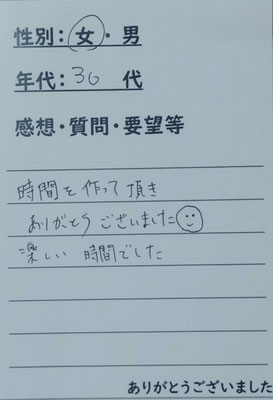 性別：女・男
年代：30 代
感想・質問・要望等
時間を作って頂き
ありがとうございました
楽しい 時間でした
ありがとうございました